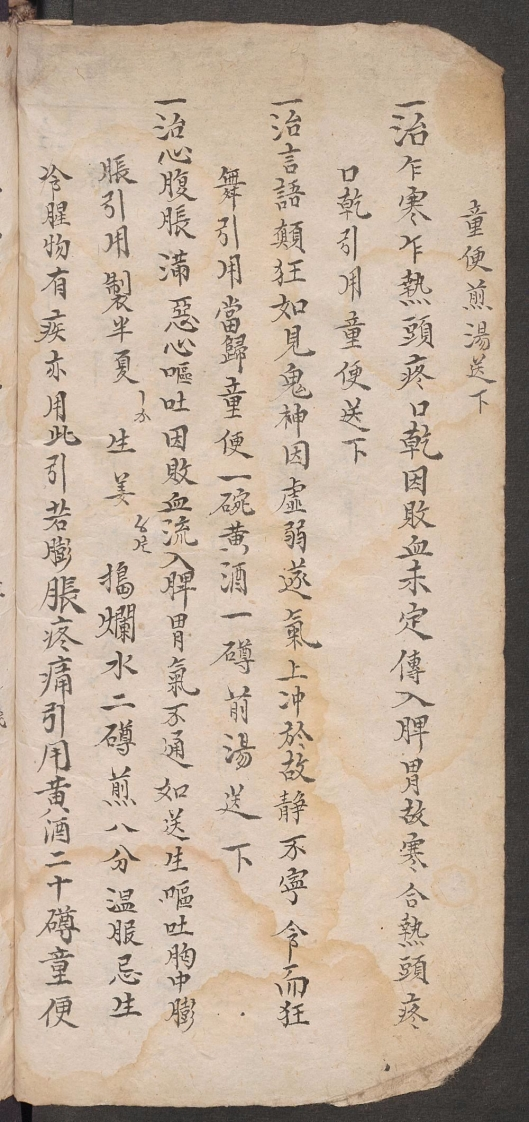 童便煎湯送下
一治乍寒乍熱頭疼口乾因敗血未定傳入脾胃故寒合熱頭疼
口乾引用童便送下
一治言語顛狂如見鬼神因虛弱遂氣上冲於故静不寧令而狂
舞引用當歸童便一碗黄酒一罇前湯送下
一治心腹脹滿惡心嘔吐因敗血流入脾胃氣不通如送生嘔吐胸中膨
脹引用製半夏生姜搗爛水二罇煎八分温服忌生
冷腥物有疾亦用此引若膨脹疼痛引用黄酒二十罇童便